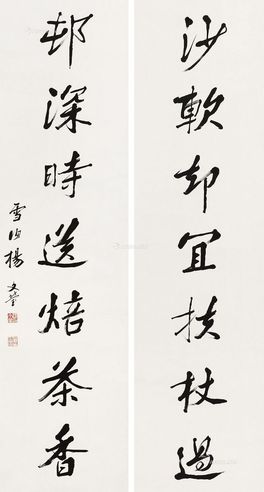 沙軟却宜扶杖過
邨深時送焙茶香
雪
楊文瑩